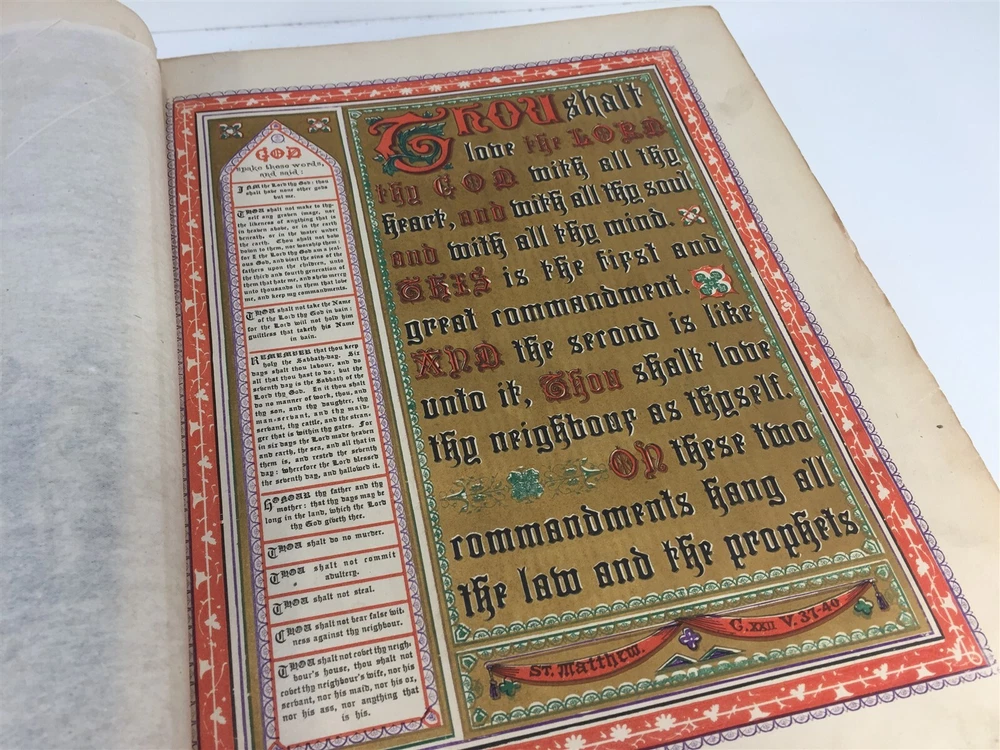 GOD
spake these words,
and said:
I AM the Lord thy God: thou
shalt have none other gods
but me.
THOU shalt not make to thy-
self any graven image, nor
the likeness of anything that is
in heaven above, or in the earth
beneath, or in the water under
the earth. Thou shalt not bow
down to them, nor worship them:
for I the Lord thy God am a jeal-
ous God, and visit the sins of the
fathers upon the children, unto
the third and fourth generation of
them that hate me, and shew mercy
unto thousands in them that love
me, and keep my commandments.
THOU shalt not take the Name
of the Lord thy God in vain:
for the Lord will not hold him
guiltless that taketh his Name
in vain.
REMEMBER that thou keep
holy the Sabbath-day. Six
days shalt thou labour, and do
all that thou hast to do; but the
seventh day is the Sabbath of the
Lord thy God. In it thou shalt
do no manner of work, thou, and
thy son, and thy daughter, thy
man-servant, and thy maid-
servant, thy cattle, and the stran-
ger that is within thy gates. For
in six days the Lord made heaven
and earth, the sea, and all that in
them is, and rested the seventh
day: wherefore the Lord blessed
the seventh day, and hallowed it.
HONOUR thy father and thy
mother: that thy days may be
long in the land, which the Lord
thy God giveth thee.
THOU shalt do no murder.
THOU shalt not commit
adultery.
THOU shalt not steal.
THOU shalt not bear false wit-
ness against thy neighbour.
THOU shalt not covet thy neigh-
bour's house, thou shalt not
covet thy neighbour's wife, nor his
servant, nor his maid, nor his ox,
nor his ass, nor anything that
is his.
Thou shalt
love the LORD
thy GOD with all thy
heart, and with all thy soul
and with all thy mind.
THIS is the first and
great commandment.
AND the second is like
unto it, Thou shalt love
thy neighbour as thyself.
ON these two
commandments hang all
the law and the prophets
ST. Matthew. C. XXII V. 37-40